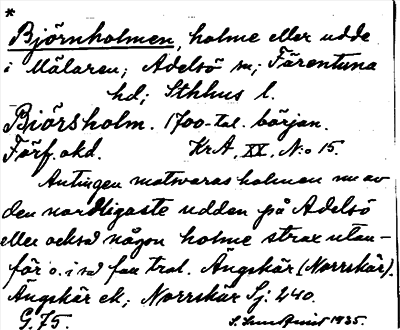 *
Björnholmen, holme eller udde
i Mälaren; Adelsö sn; Färentuna
hd; Sthlms l.
Biörsholm. 1700-tal. början.
Förf. okd. KrA, XX, N:o 15.
Antingen motsvaras holmen nu av
den nordligaste udden på Adelsö
eller också någon holme strax utan-
för o. i så fall trol. Ängskär (Norrskär).
Ängskär ek; Norrskär Sj: 240.
G. 75. 1935.